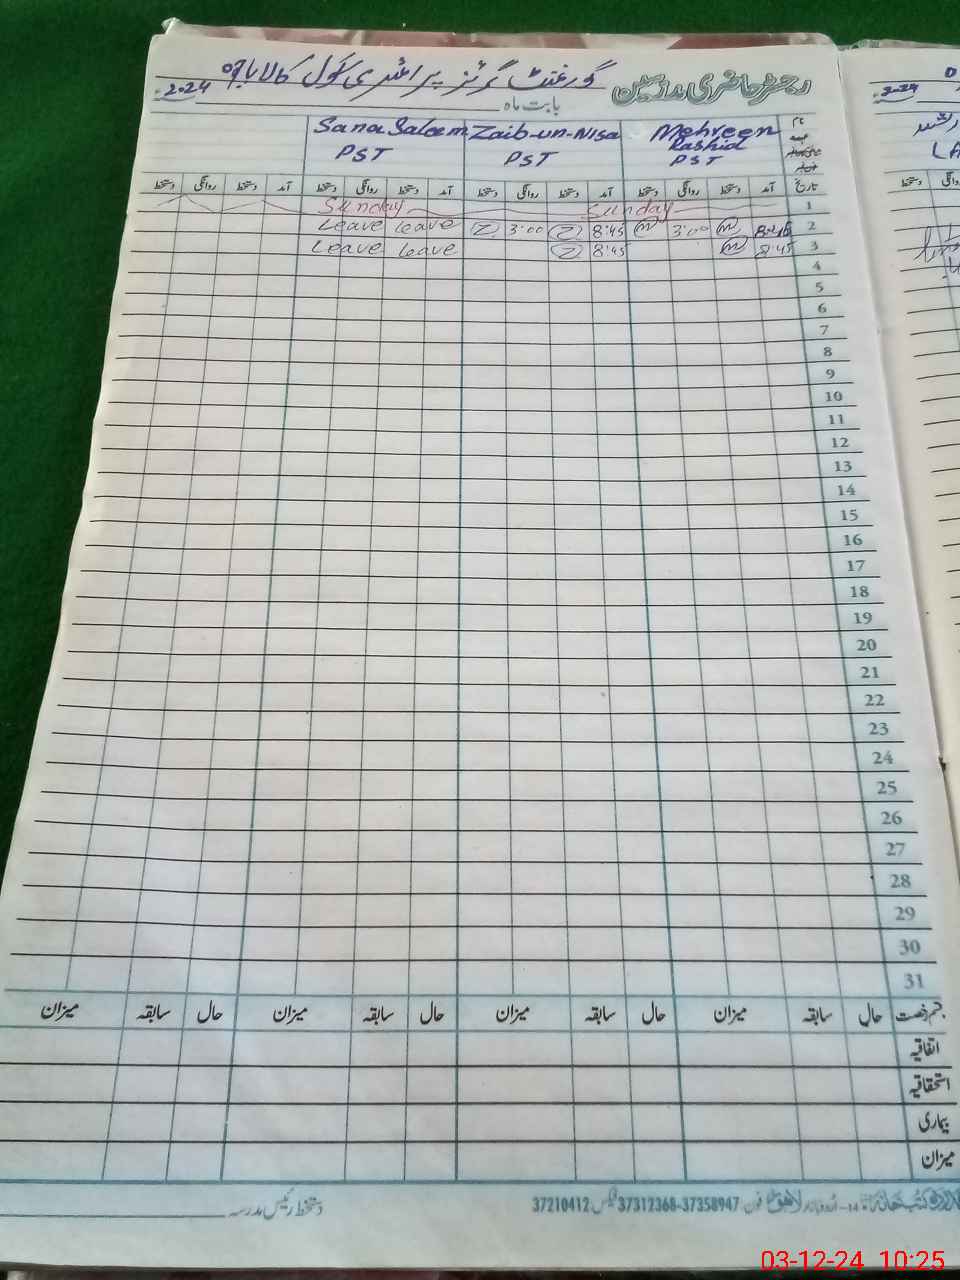 رجسٹر حاضری مدرسین گورنمنٹ گرلز پرائمری سکول کالا باغ 2024
بابت ماہ
نام Mehreen Rashid Zaib-un-Nisa Sana Saleem
PST PST PST
تاریخ آمد دستخط روانگی دستخط آمد دستخط روانگی دستخط آمد دستخط روانگی دستخط آمد دستخط روانگی دستخط
1 Sunday Sunday
2 8:45 m 3:00 m 8:45 Z 3:00 Z Leave Leave
3 8:45 m 8:45 Z Leave Leave
4
5
6
7
8
9
10
11
12
13
14
15
16
17
18
19
20
21
22
23
24
25
26
27
28
29
30
31
قسم رخصت حال سابقہ میزان حال سابقہ میزان حال سابقہ میزان حال سابقہ میزان
اتفاقیہ
استحقاقیہ
بیماری
میزان
14-اردو بازار لاہور فون: 37312368-37358947 فیکس: 37210412
دستخط رئیس مدرسہ
2024
03-12-24 10:25